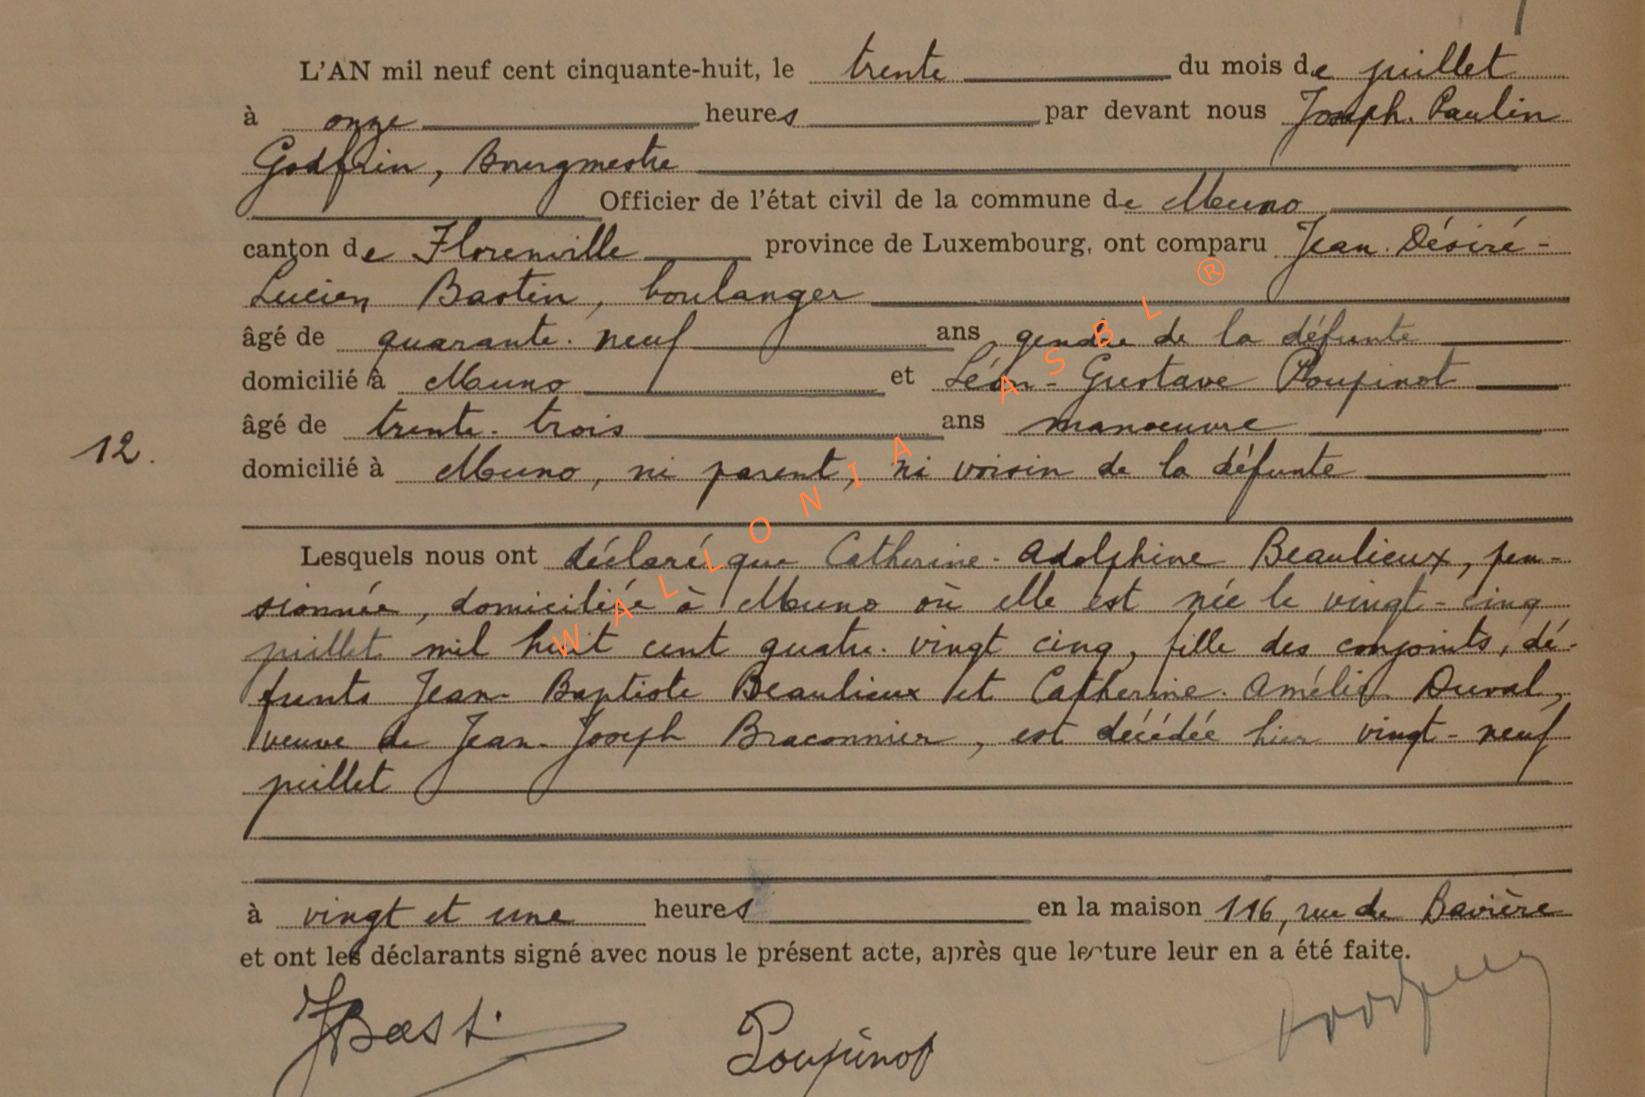 L'AN mil neuf cent cinquante-huit, le trente du mois de juillet
à onze heures par devant nous Joseph-Paulin
Godfrin, Bourgmestre
Officier de l'état civil de la commune de Muno
canton de Florenville province de Luxembourg, ont comparu Jean-Désiré-
Lucien Bastin, boulanger
âgé de quarante-neuf ans gendre de la défunte
domicilié à Muno et Léon-Gustave Poupinot
âgé de trente-trois ans manoeuvre
12. domicilié à Muno, ni parent, ni voisin de la défunte
Lesquels nous ont déclaré que Catherine-Adolphine Beaulieux, pen-
sionnée, domiciliée à Muno où elle est née le vingt-cinq
juillet mil huit cent quatre-vingt cinq, fille des conjoints, dé-
funts Jean-Baptiste Beaulieux et Catherine-Amélie Duval,
veuve de Jean-Joseph Braconnier, est décédée hier vingt-neuf
juillet
à vingt et une heures en la maison 116, rue de Bavière
et ont les déclarants signé avec nous le présent acte, après que lecture leur en a été faite.
JBasti Poupinot
WALLONIA ASBL ®